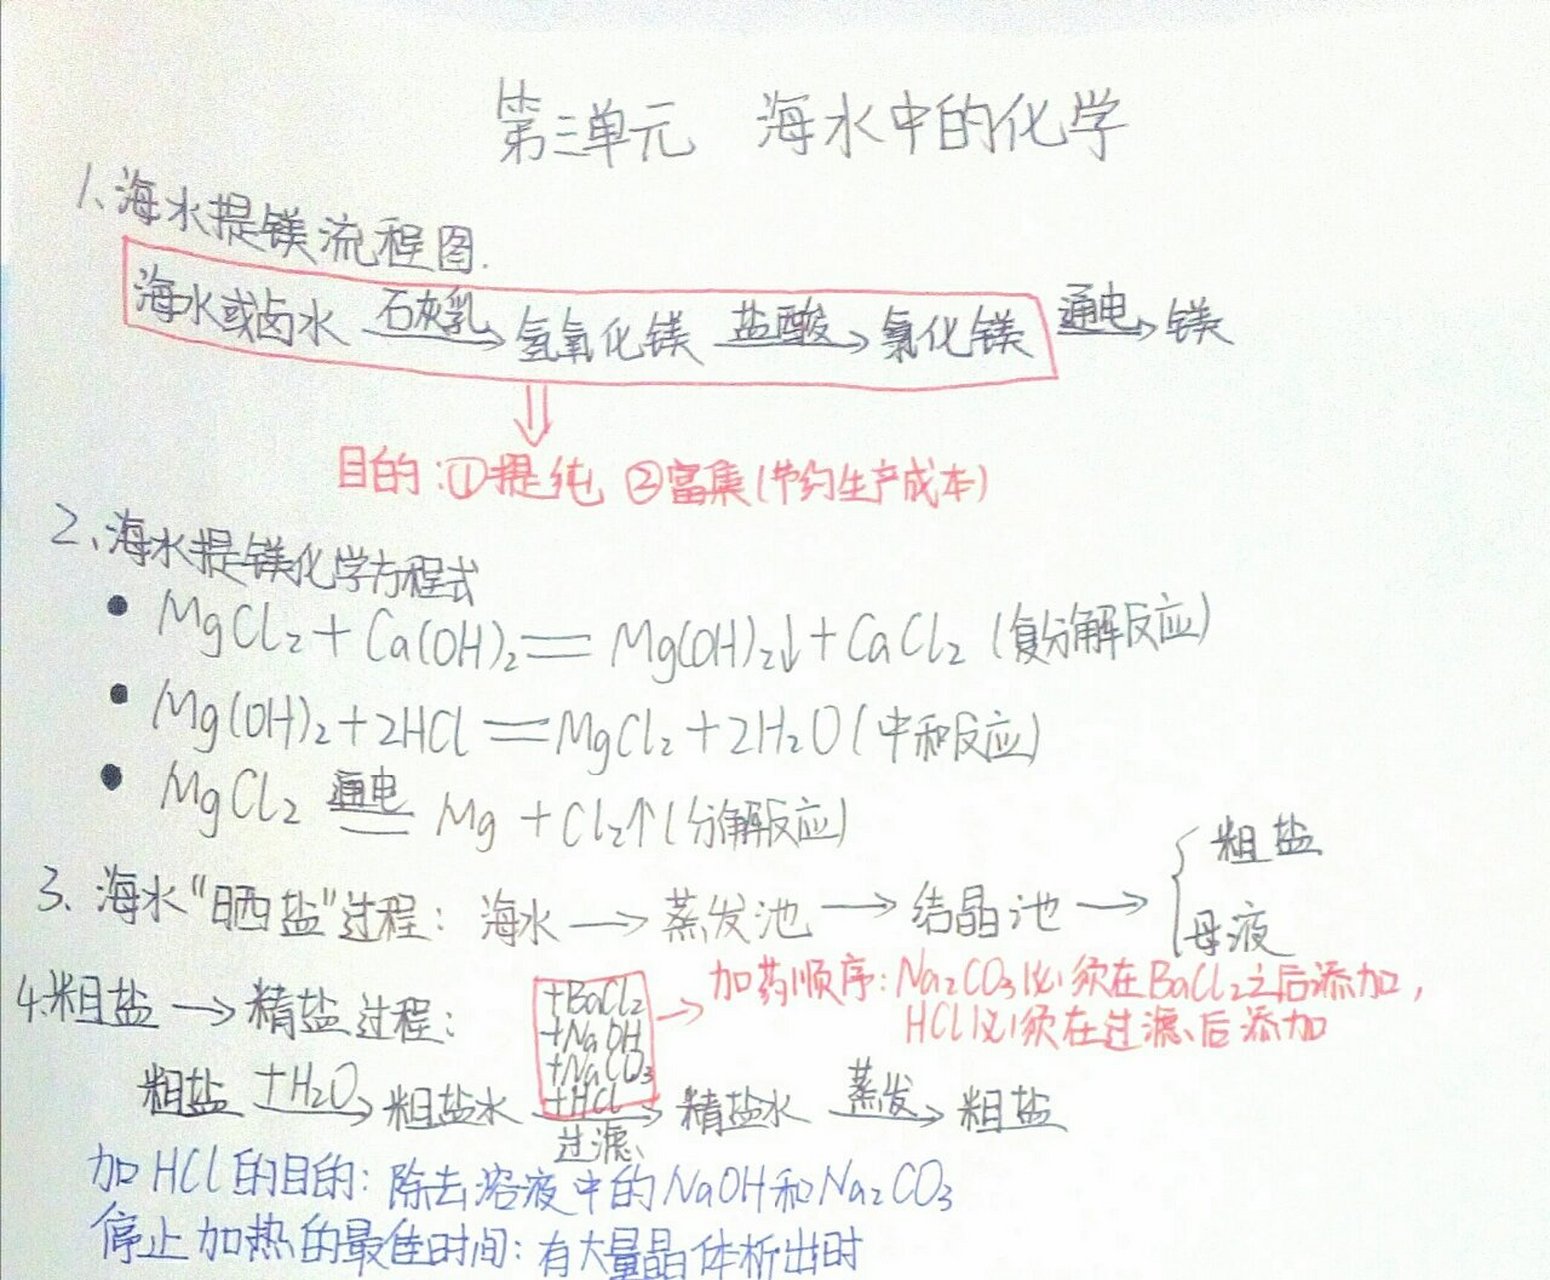 第三单元 海水中的化学
1、海水提镁流程图.
海水或卤水 石灰乳→ 氢氧化镁 盐酸→ 氯化镁 通电→ 镁
目的:①提纯 ②富集(节约生产成本)
2、海水提镁化学方程式
• MgCl₂+Ca(OH)₂══Mg(OH)₂↓+CaCl₂(复分解反应)
• Mg(OH)₂+2HCl══MgCl₂+2H₂O(中和反应)
• MgCl₂ 通电══ Mg+Cl₂↑(分解反应)
3、海水“晒盐”过程: 海水→蒸发池→结晶池→{粗盐
母液
4.粗盐→精盐过程:
+BaCl₂
+NaOH
+NaCO₃
+HCl
→加药顺序:Na₂CO₃必须在BaCl₂之后添加,
HCl必须在过滤后添加
粗盐 +H₂O→ 粗盐水 过滤→ 精盐水 蒸发→ 粗盐
加HCl的目的:除去溶液中的NaOH和Na₂CO₃
停止加热的最佳时间:有大量晶体析出时